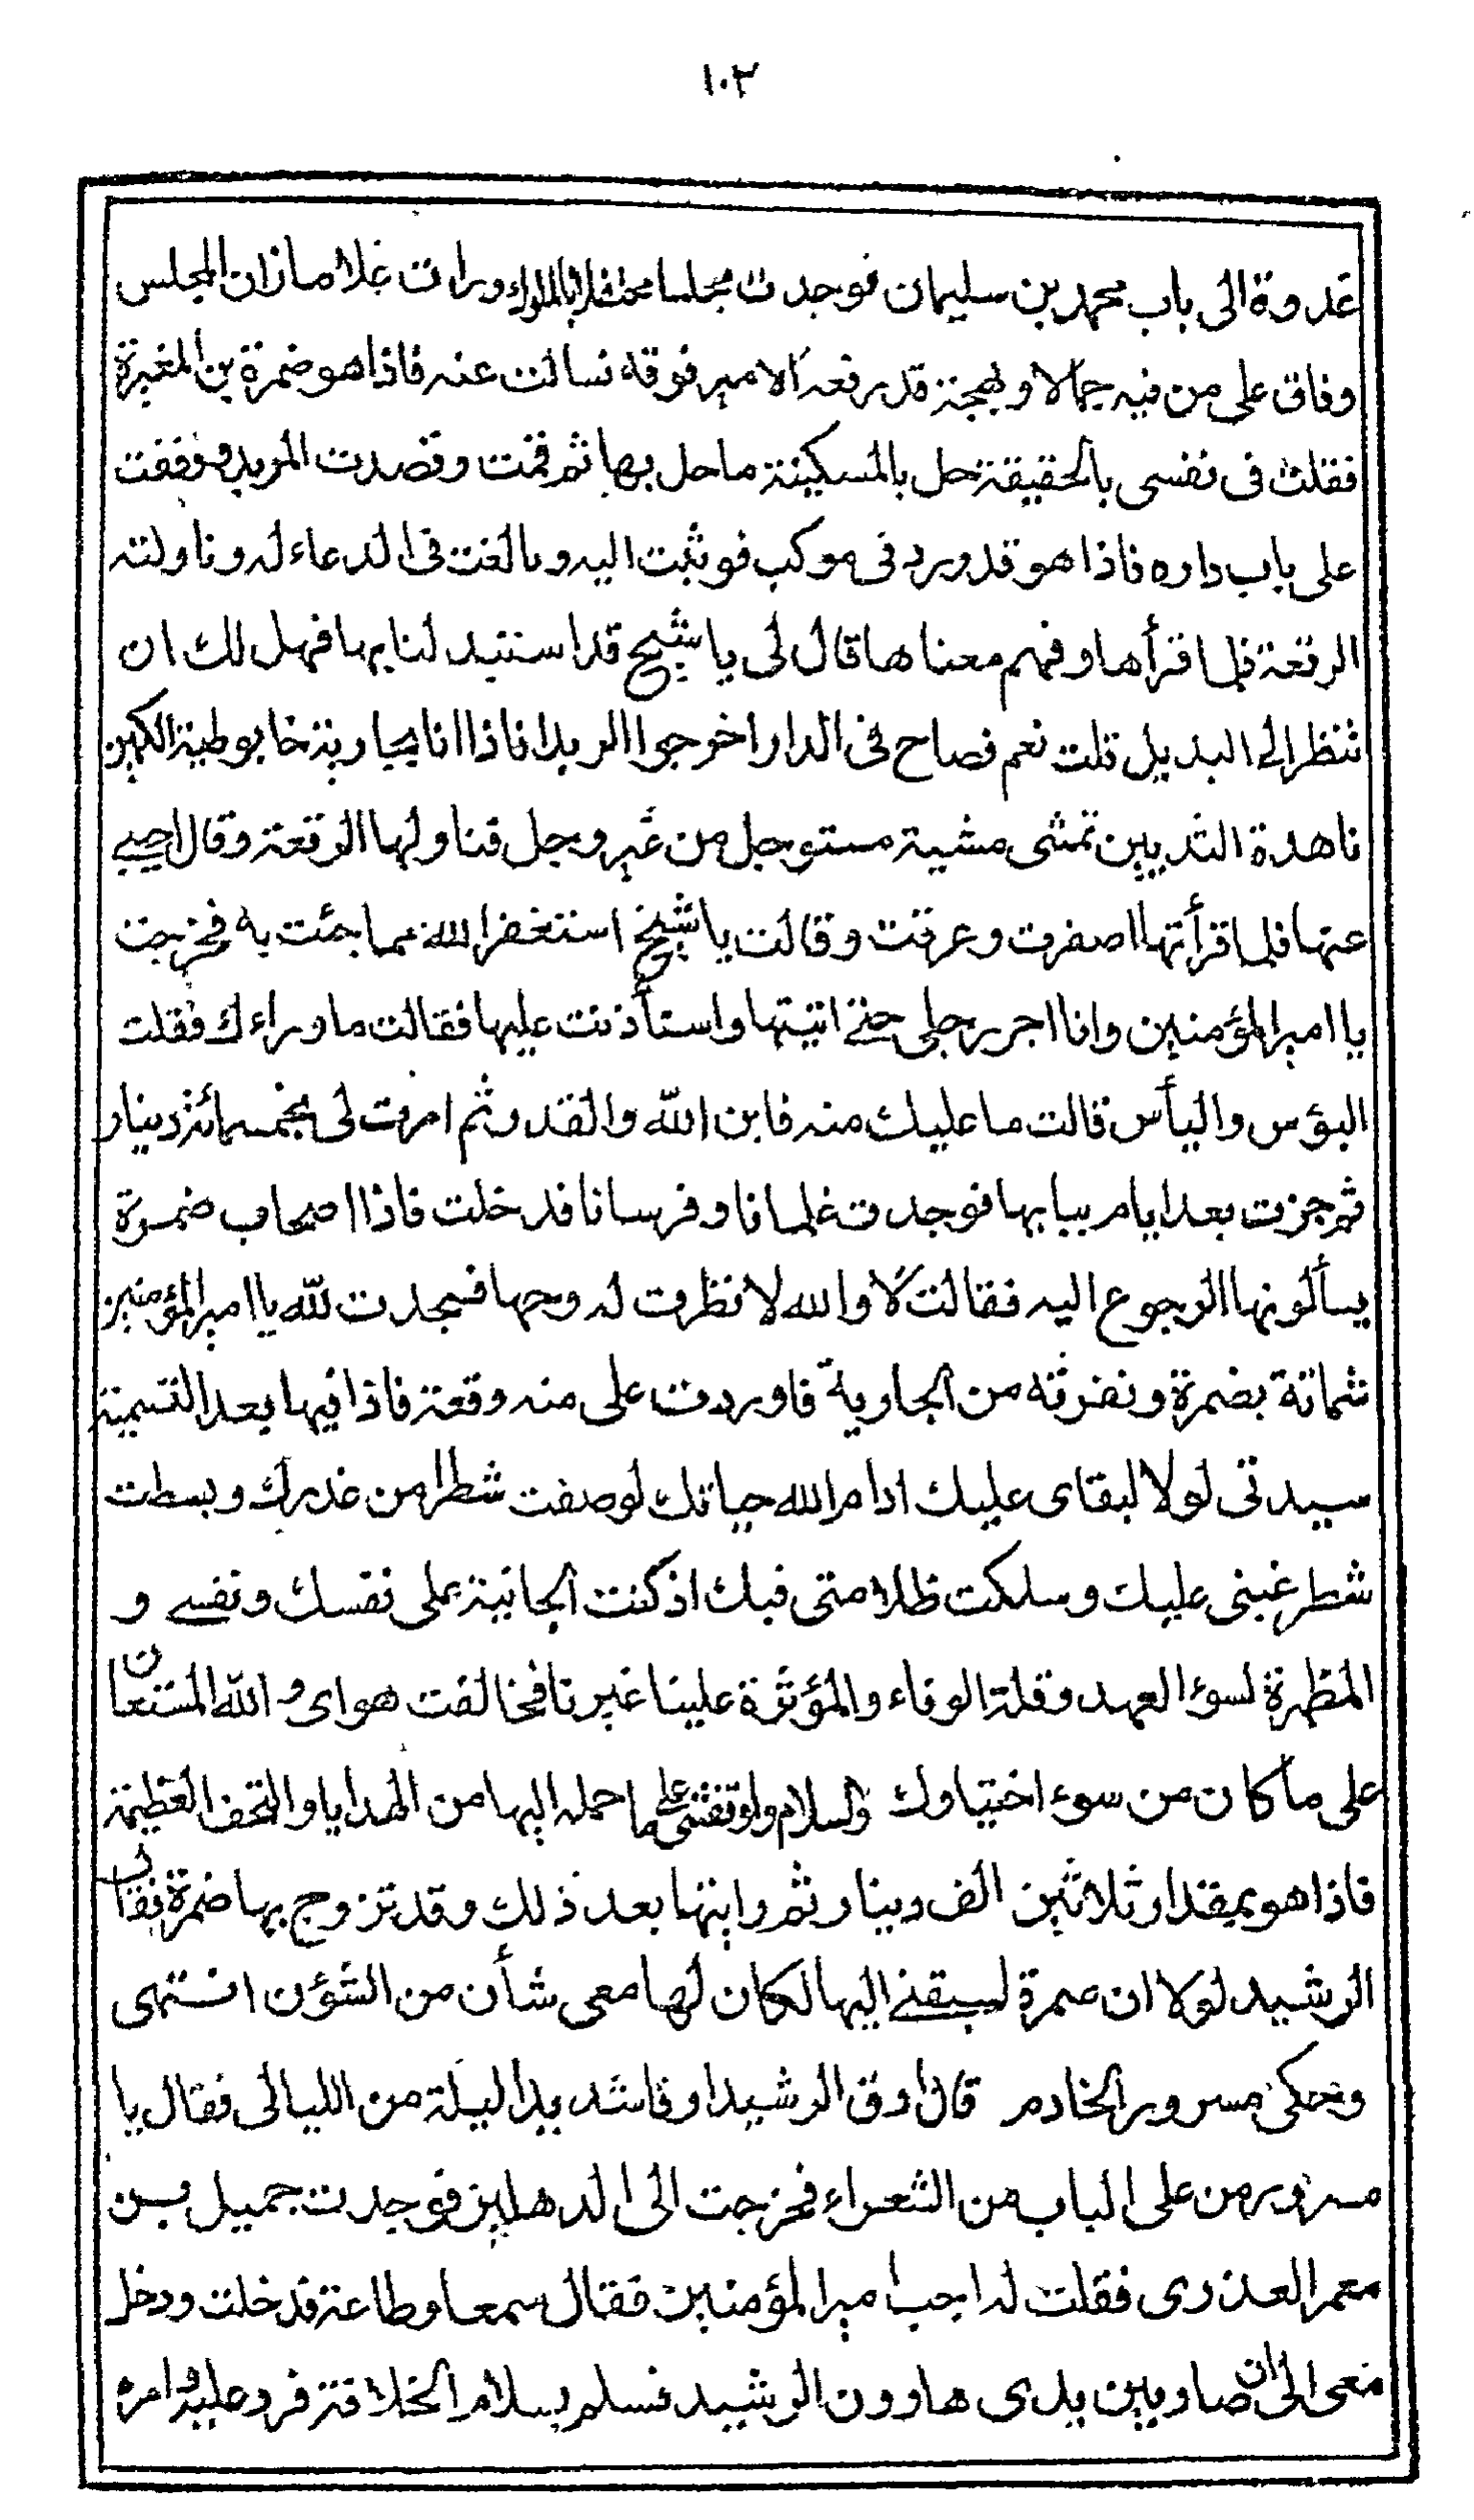 ١٠٢
غدوة الى باب محمد بن سليمان فوجدت مجلسا محتفلا بالملوك ورات غلاما زان المجلس
وفاق على من فيه جمالا وبهجة قد رفعه الامير فوقه نسالت عنه فاذا هو ضمرة بن المغيرة
فقلت فى نفسى بالحقيقة حل بالمسكينة ماحل بها ثم قمت وقصدت المربد ووقفت
على باب داره فاذا هو قد ورد فى موكب فوثبت اليه وبالغت فى الدعاء له وناولته
الرقعة فلما قرأها وفهم معناها قال لى يا شيخ قد استبد لنا بها فهل لك ان
تنظر الى البديل قلت نعم فصاح فى الدار اخرجوا الربدا فاذا انا بجارية خابوطية الكمين
ناهدة الثديين تمشى مشية مستوجل من غير وجل فناولها الرقعة وقال اجيبى
عنها فلما قرأتها اصفرت وعرقت وقالت يا شيخ استغفر الله مما جئت به فخرجت
يا امير المؤمنين وانا اجر رجلى حتى اتيتها واستأذنت عليها فقالت ما وراءك فقلت
البؤس واليأس قالت ما عليك منه فاين الله والقدر ثم امرت لى بخمسمائة دينار
ثم جزت بعد ايام ببابها فوجدت غلمانا وفرسانا فدخلت فاذا اصحاب ضمرة
يسألونها الرجوع اليه فقالت لا والله لا نظرت له وجها فسجدت لله يا امير المؤمنين
شماتة بضمرة ونفرته من الجارية فاوردت على منه وقعة فاذا فيها بعد التسمية
سيدتى لولا لبقاى عليك ادام الله حياتك لوصفت شطرا من غدرك وبسطت
شطر غبنى عليك وسلكت ظلامتى فيك اذ كنت الجانية على نفسك ونفسى و
المظهرة لسوء العهد وقلة الوفاء والمؤثرة علينا غيرنا فخالفت هواى والله المستعان
على ما كان من سوء اختيارك والسلام واوقفتنى على ما حمله اليها من الهدايا والتحف العظيمة
فاذا هو بمقدار ثلاثين الف دينار ثم رايتها بعد ذلك وقد تزوج بها ضمرة فقال
الرشيد لولا ان ضمرة لسبقنى اليها لكان لها معى شأن من الشؤن انتهى
وحكى مسرور الخادم قال ارق الرشيد ارقا شديدا ليلة من الليالى فقال يا
مسرور من على الباب من الشعراء فخرجت الى الدهليز فوجدت جميل بن
معمر العذرى فقلت له اجب امير المؤمنين فقال سمعا وطاعة فدخلت ودخل
معى الى ان صار بين يدى هارون الرشيد فسلم بسلام الخلافة فرد عليه وامره